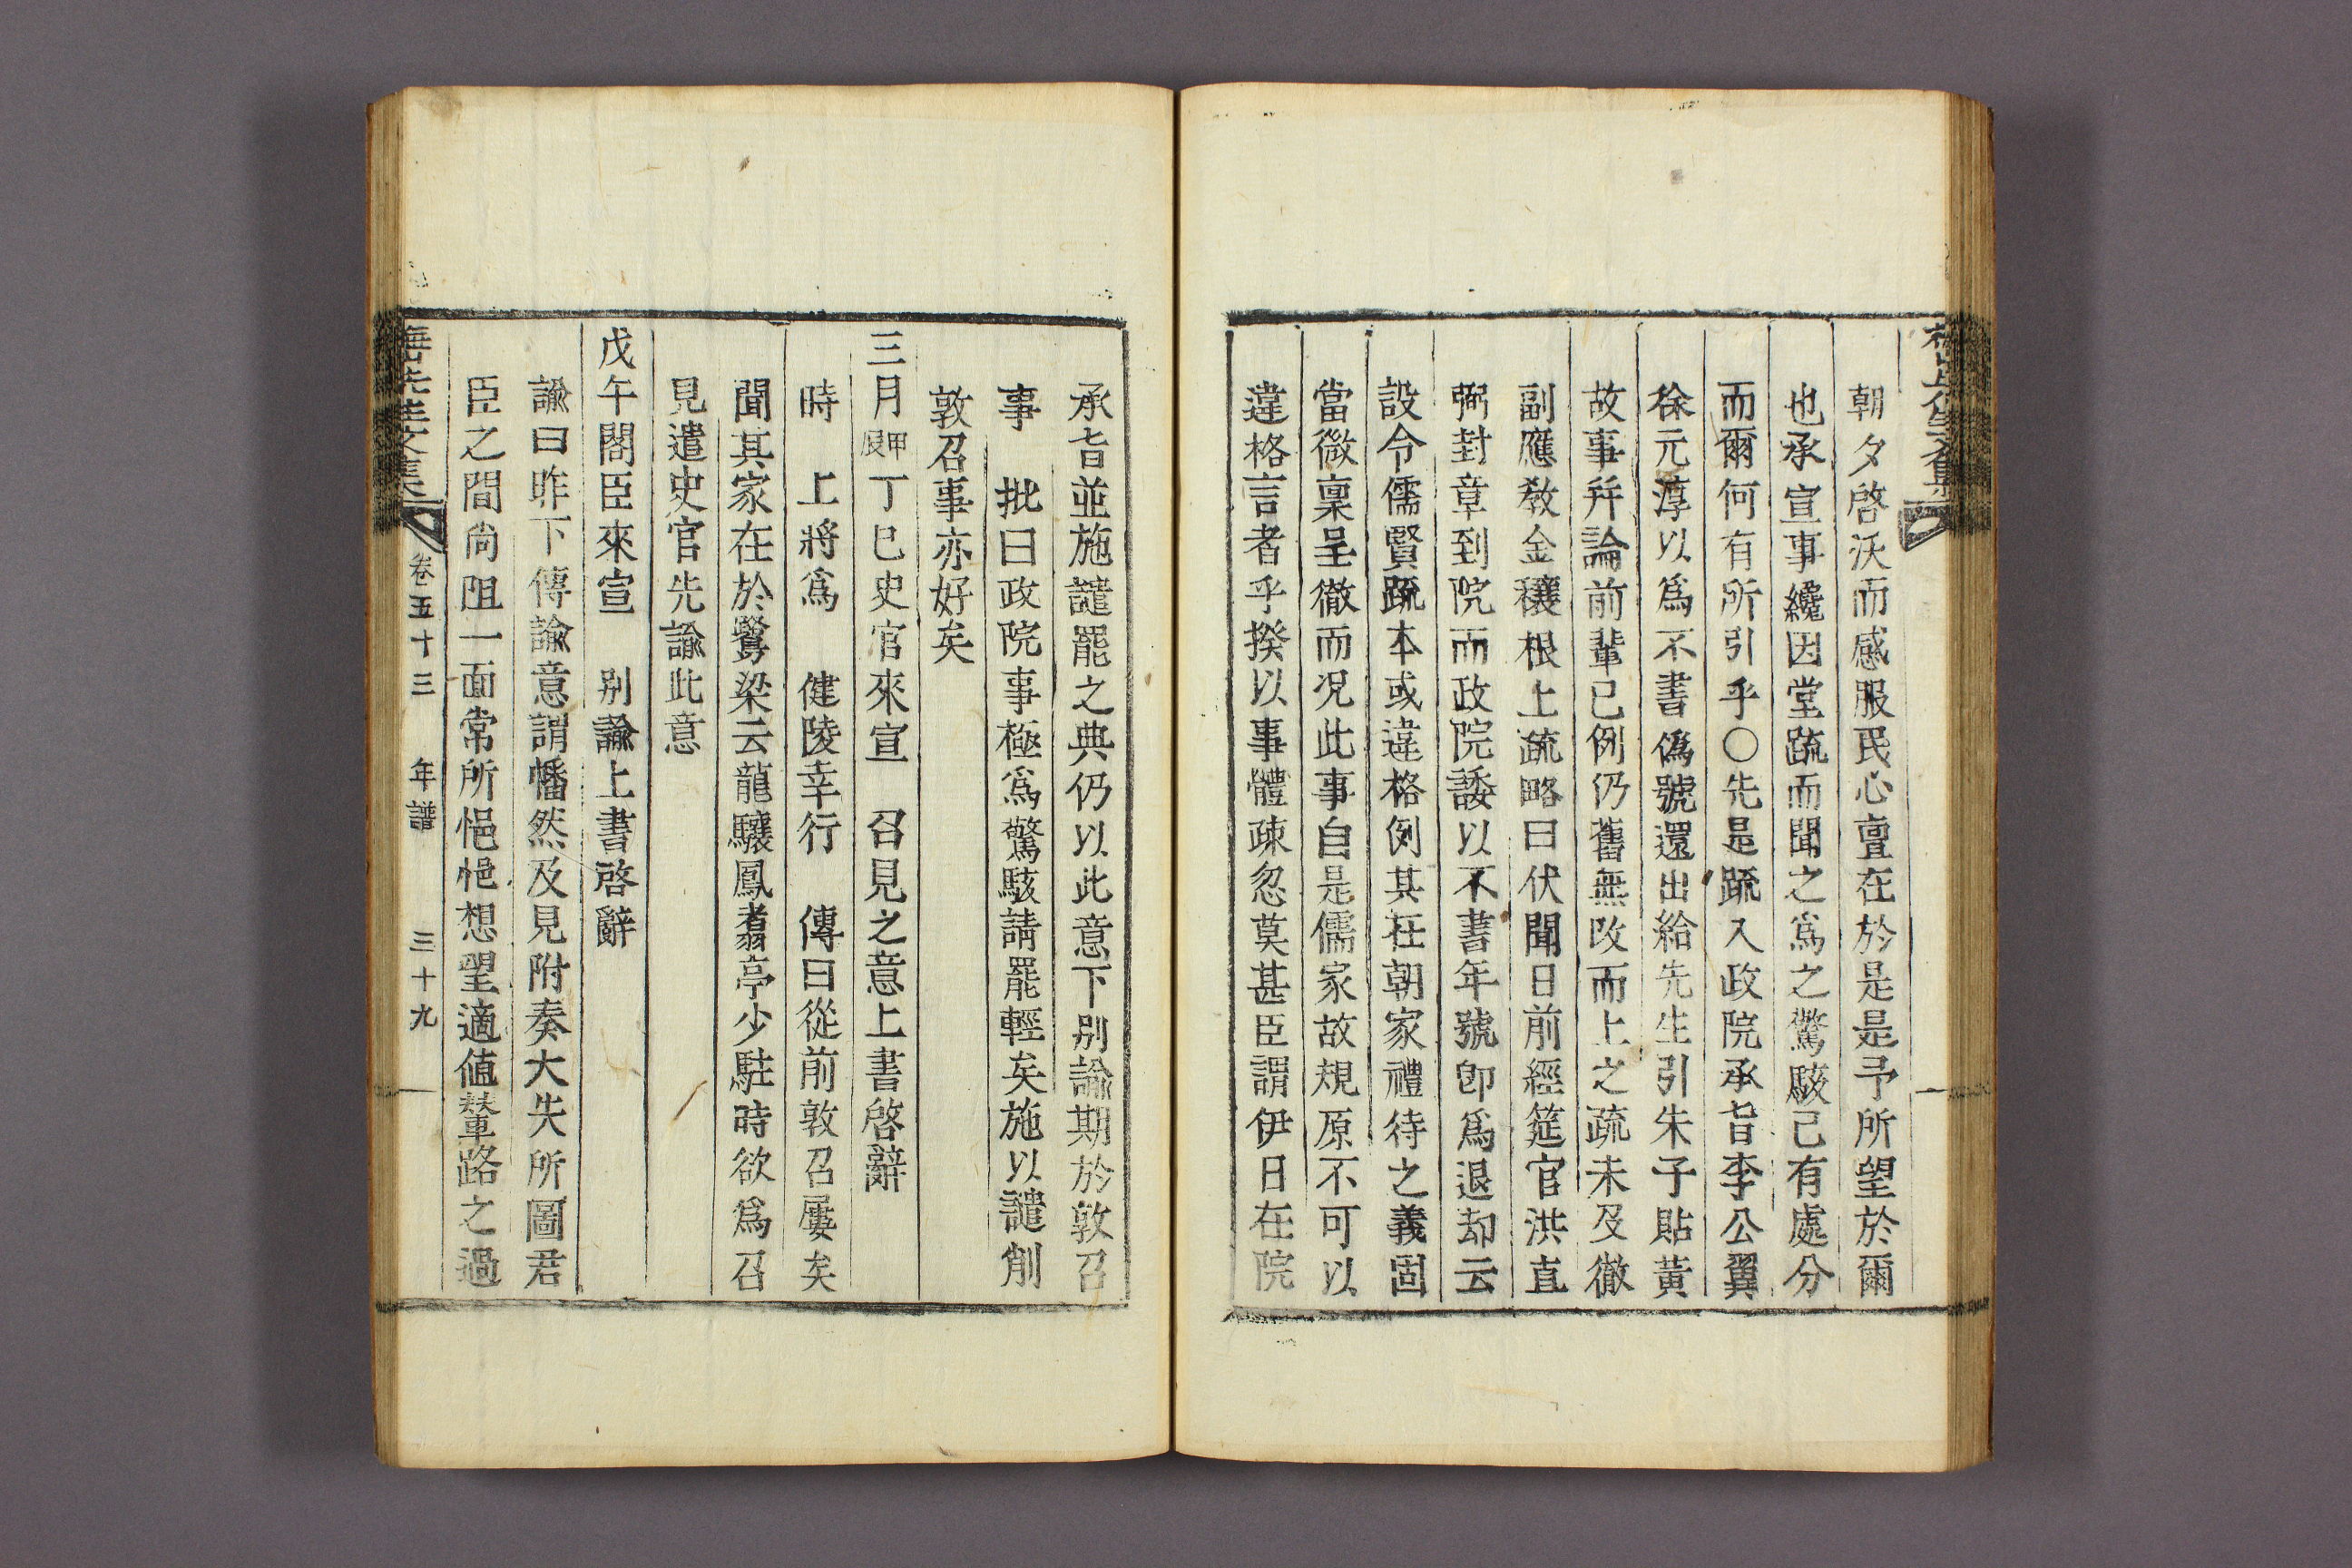 朝夕啓沃而感服民心亶在於是是予所望於爾
也承宣事纔因堂䟽而聞之爲之驚駭已有處分
而爾何有所引乎○先是䟽入政院承旨李公翼
以爲不書僞號還出給先生引朱子貼黃
故事幷論前輩已例仍舊無改而上之疏未及徹
副應敎金穰根上疏略曰伏聞日前經筵官洪直
弼封章到院而政院諉以不書年號卽爲退却云
設令儒賢䟽本或違格例其在朝家禮待之義固
當微稟呈徹而况此事自是儒家故規原不可以
違格言者乎揆以事體疎忽莫甚臣謂伊日在院
承旨並施譴罷之典仍以此意下別諭期於敦召
事 批曰政院事極爲驚駭請罷輕矣施以譴削
敦召事亦好矣
三月甲辰丁巳史官來宣 召見之意上書啓辭
時 上將爲 健陵幸行 傳曰從前敦召屢矣
聞其家在於鷺梁云龍驤鳳翥亭少駐時欲爲召
見遣史官先諭此意
戊午閣臣來宣 別諭上書啓辭
諭曰昨下傳諭意謂幡然及見附奏大失所圖君
臣之間尙阻一面常所悒悒想望適値輦路之過
先生文集 卷五十三 年譜 三十九